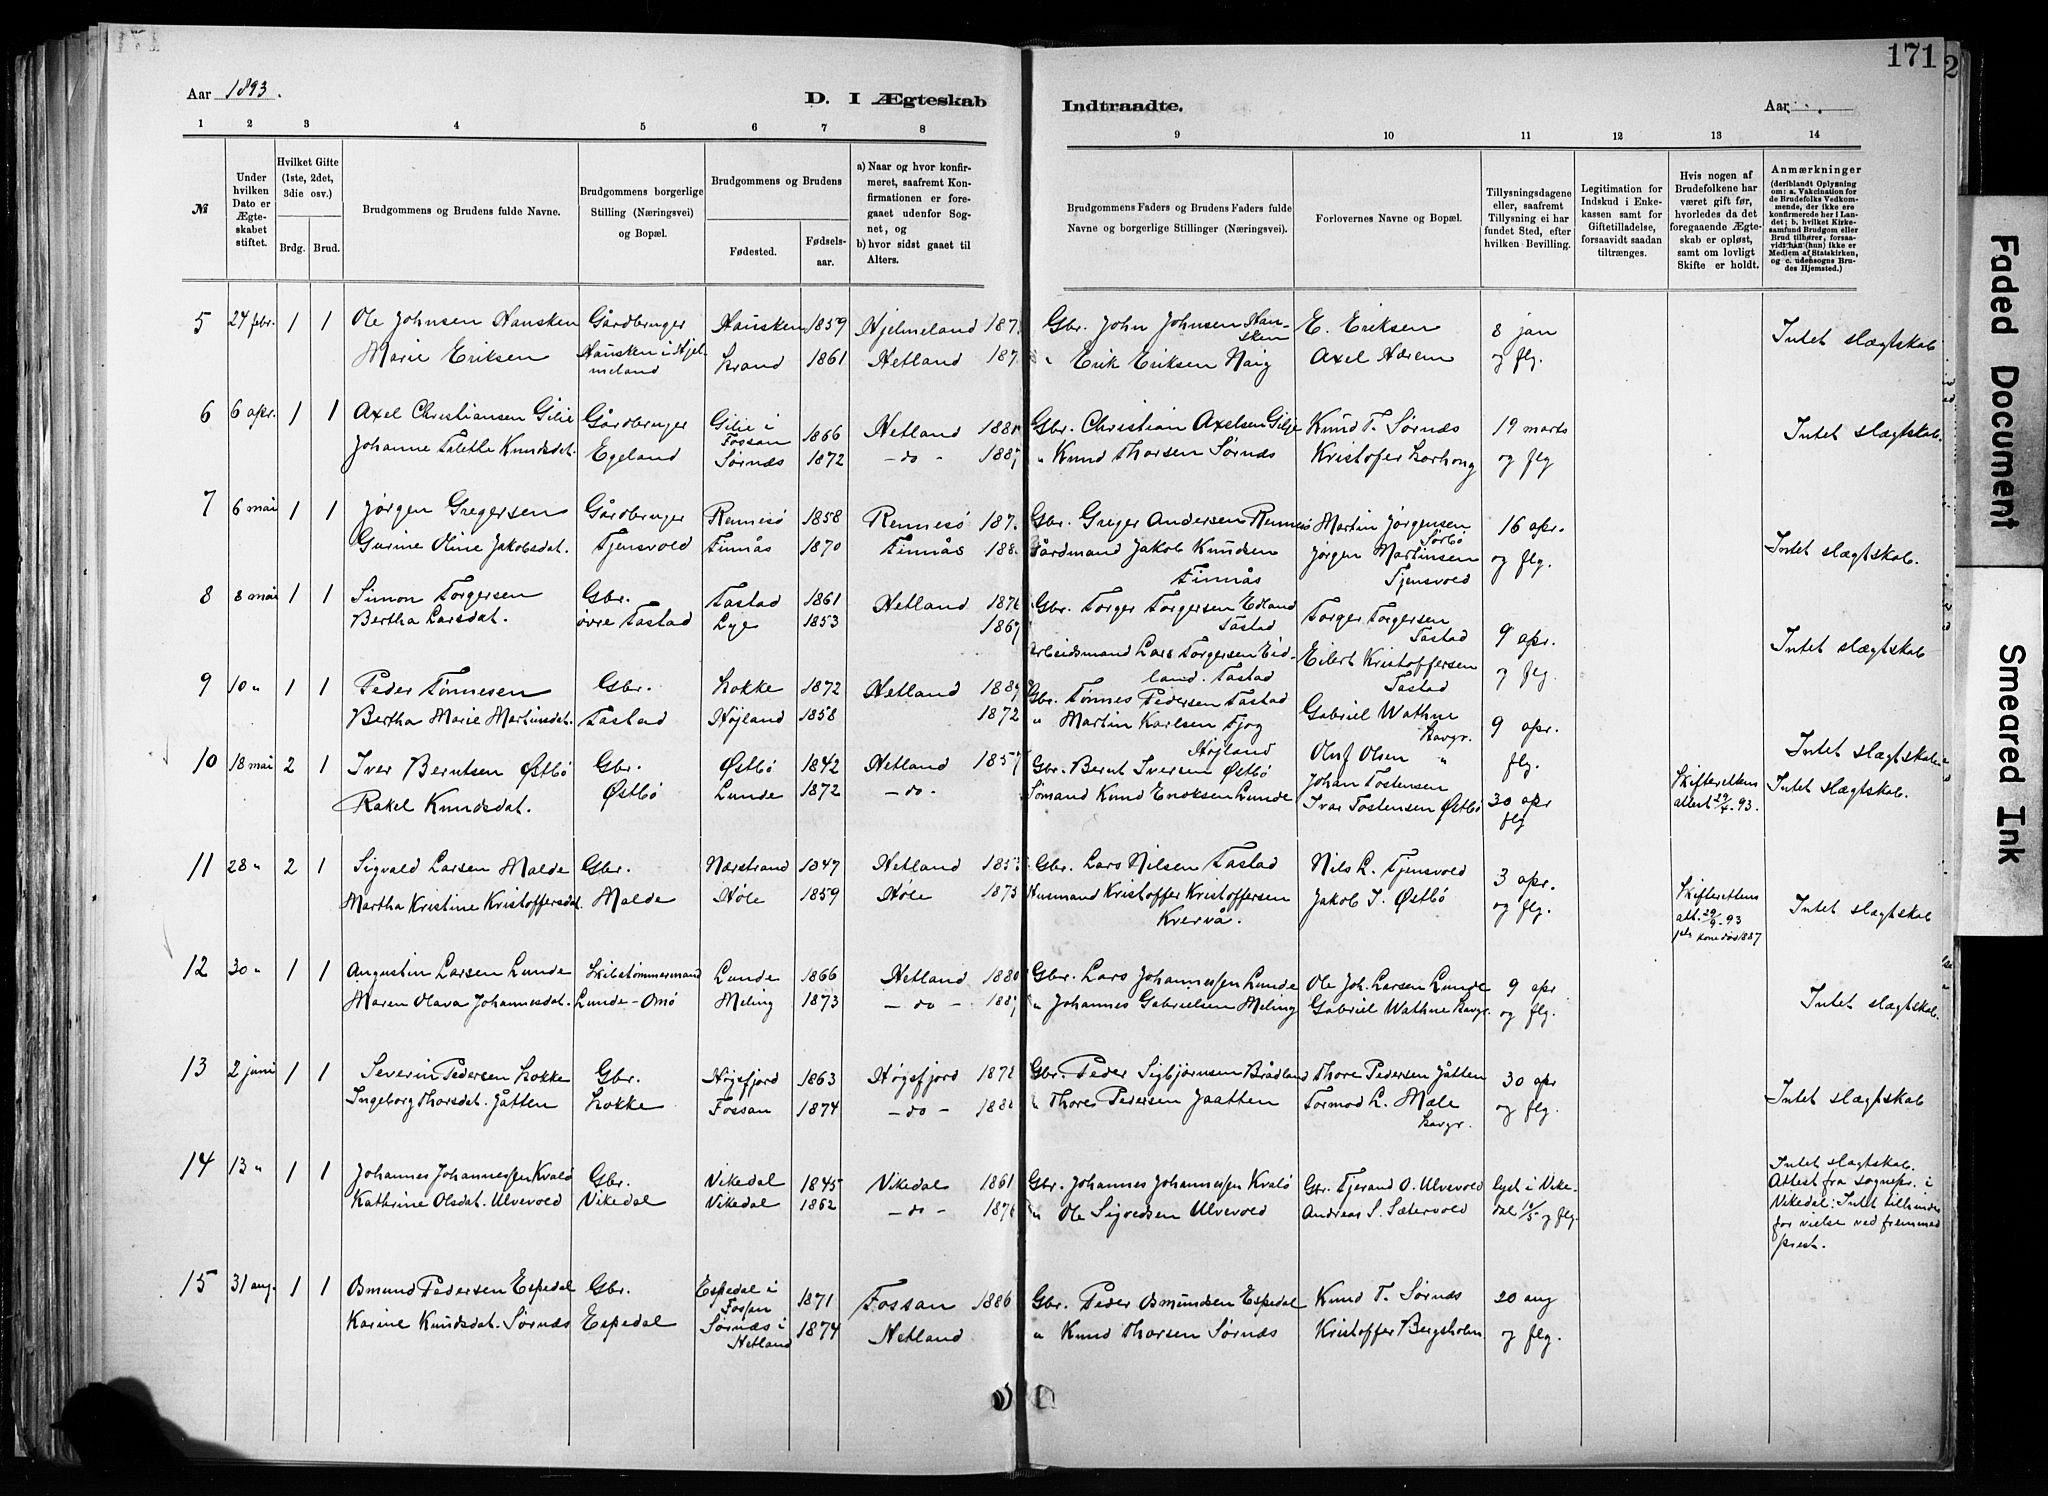 171
2
Aar 1893.
D. I Ægteskab
Indtraadte.
Aar
1 2 3 4 5 6 7 8 9 10 11 12 13 14
№
Under hvilken Dato er Ægteskabet stiftet.
Hvilket Gifte (1ste, 2det, 3die osv.)
Brdg. Brud.
Brudgommens og Brudens fulde Navne.
Brudgommens borgerlige Stilling (Næringsvei) og Bopæl.
Brudgommens og Brudens
Fødested.
Fødselsaar.
a) Naar og hvor konfirmeret, saafremt Konfirmationen er foregaaet udenfor Sognet, og
b) hvor sidst gaaet til Alters.
Brudgommens Faders og Brudens Faders fulde Navne og borgerlige Stillinger (Næringsvei).
Forlovernes Navne og Bopæl.
Tillysningsdagene eller, saafremt Tillysning ei har fundet Sted, efter hvilken Bevilling.
Legitimation for Indskud i Enkekassen samt for Giftetilladelse, forsaavidt saadan tiltrænges.
Hvis nogen af Brudefolkene har været gift før, hvorledes da det foregaaende Ægteskab er opløst, samt om lovligt Skifte er holdt.
Anmærkninger
(deriblandt Oplysning om: a. Vakcination for de Brudefolks Vedkommende, der ikke ere konfirmerede her i Landet; b. hvilket Kirkesamfund Brudgom eller Brud tilhører, forsaavidt han (hun) ikke er Medlem af Statskirken, og c. udensogns Brudes Hjemsted.)
5 24 febr. 1 1 Ole Johnsen Hausken Gårdbruger Hausken 1859 Hjelmeland 187 Gbr. John Johnsen Hausken E. Eriksen 8 jan Intet slægtskab
Marie Eriksen Hausken i Hjelmeland Strand 1861 Hetland 187 " Erik Eriksen Haig Axel Nærem og flg.
6 6 apr. 1 1 Axel Christiansen Gilje Gårdbruger Gilje i Fossan 1866 Hetland 1881 Gbr. Christian Axelsen Gilje Knud T. Sørnæs 19 marts Intet slægtskab.
Johanne Talette Knudsdat. Egeland Sørnæs 1872 - do - 1887 " Knud Thorsen Sørnæs Kristofer Storhoug og flg
7 6 mai 1 1 Jørgen Gregersen Gårdbruger Rennesö 1858 Rennesö 187 Gbr. Greger Andersen Rennesö Martin Jørgensen Sørbö 16 apr. Intet slægtskab.
Gurine Oline Jakobsdat. Tjensvold Finnås 1870 Finnås 188 Gårdmand Jakob Knudsen Finnås Jørgen Martinsen Tjensvold og flg.
8 8 mai 1 1 Simon Torgersen Gbr. Tastad 1861 Hetland 1876 Gbr. Torger Torgersen Edland Tastad Torger Torgersen Tastad 9 apr. Intet slægtskab
Bertha Larsdat. øvre Tastad Lye 1853 1867 Arbeidsmand Lars Torgersen Eidland. Tastad Eilert Kristoffersen Tastad og flg.
9 10 " 1 1 Peder Tønnesen Gbr. Stokke 1872 Hetland 1887 Gbr. Tønnes Pedersen Tastad Gabriel Wathne Stavgr. 9 apr. Intet slægtskab
Bertha Marie Martinsdat. Tastad Højland 1858 1872 " Martin Karlsen Fjog Højland Oluf Olsen " flg.
10 18 mai 2 1 Iver Berntsen Østbö Gbr. Østbö 1842 Hetland 1857 Gbr. Bernt Iversen Østbö Johan Tostensen 30 apr Skifterettens attest 29/4. 93. Intet slægtskab.
Rakel Knudsdat. Østbö Lunde 1872 - do - Sømand Knud Enoksen Lunde Ivar Tostensen Østbö flg
11 28 " 2 1 Sigvald Larsen Malde Gbr. Nærstrand 1847 Hetland 1853 Gbr. Lars Nilsen Tastad Nils L. Tjensvold 3 apr. Skifterettens att. 93 Intet slægtskab
Martha Kristine Kristoffersdat. Malde Høle 1859 Høle 1875 Husmand Kristoffer Kristoffersen Kvervå. Jakob I. Østbö og flg. kone død 1887
12 30 " 1 1 Augustin Larsen Lunde Skibstømmermand Lunde 1866 Hetland 1880 Gbr. Lars Johannessen Lunde Ole Joh. Larsen Lunde 9 apr Intet slægtskab.
Maren Olava Johannesdat. Lunde-Omö Meling 1873 - do - 1887 " Johannes Gabrielsen Meling Gabriel Wathne Stavgr. og flg.
13 2 juni 1 1 Severin Pedersen Stokke Gbr. Høgsfjord 1863 Høgsfjord 1878 Gbr. Peder Sigbjørnsen Brådland Thore Pedersen Jåtten 30 apr Intet slægtskab
Ingeborg Thorsdat. Jåtten Stokke Fossan 1874 - do - 188 " Thore Pedersen Jaatten Tormod L. Mæle Stavgr. og flg.
14 13 " 1 1 Johannes Johannessen Kvalö Gbr. Vikedal 1845 Vikedal 1861 Gbr. Johannes Johannessen Kvalö Gbr. Tjerand O. Ulvevold lyst i Vikedal Intet slægtskab. Attest fra sognepr. i
Kathrine Olsdat. Ulvevold Vikedal Vikedal 1862 - do - 187 " Ole Sigvedsen Ulvevold Andreas S. Sætervold 14/5 og flg. Vikedal: Intet tilhinder for vielse ved fremmed prest.
15 31 aug. 1 1 Osmund Pedersen Espedal Gbr. Espedal i Fossan 1871 Fossan 1886 Gbr. Peder Osmundsen Espedal Knud T. Sørnæs 20 aug
Karine Knudsdat. Sørnæs Espedal Sørnæs i Hetland 1874 Hetland " Knud Thorsen Sørnæs Kristoffer Bergsholm og flg.
Faded Document
Smeared Ink